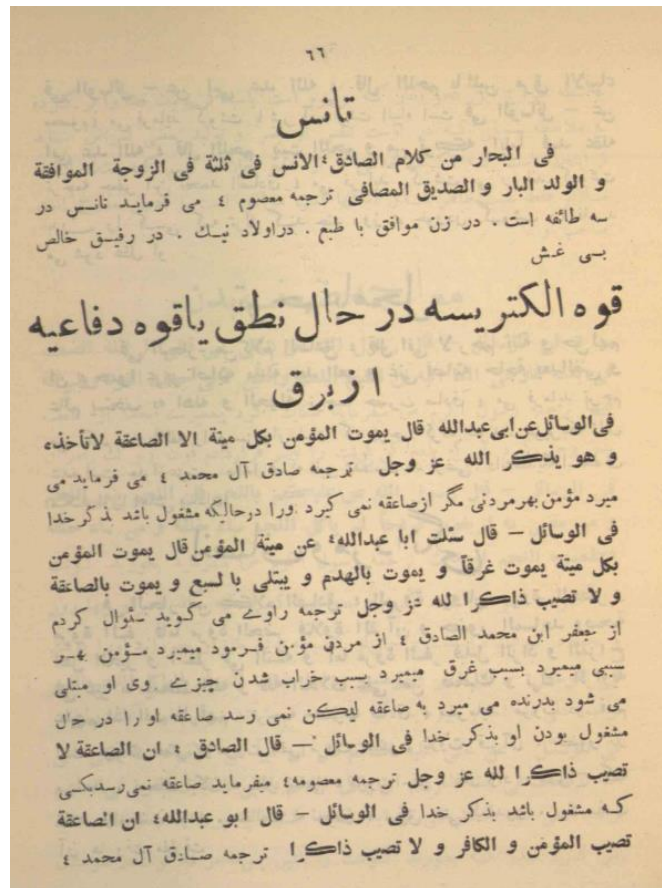 ٦٦
تانس
فى البحار من كلام الصادق ٤ الانس فى ثلثة فى الزوجة الموافقة
و الولد البار و الصديق المصافى ترجمه معصوم ٤ مى فرمايد تانس در
سه طائفه است . در زن موافق با طبع . دراولاد نيك . در رفيق خالص
بى غش
قوه الكتريسه در حال نطق ياقوه دفاعيه
از برق
فى الوسائل عن ابى عبدالله قال يموت المؤمن بكل ميتة الا الصاعقة لاتأخذه
و هو يذكر الله عز وجل ترجمه صادق آل محمد ٤ مى فرمايد مى
ميرد مؤمن بهرمردنى مگر ازصاعقه نمى گيرد اورا درحاليكه مشغول باشد بذكر خدا
فى الوسائل – قال سئلت ابا عبدالله ٤ عن ميتة المؤمن قال يموت المؤمن
بكل ميتة يموت غرقاً و يموت بالهدم و يبتلى بالسبع و يموت بالصاعقة
و لا تصيب ذاكرا لله عز وجل ترجمه راوى مى گويد سئوال كردم
از جعفر ابن محمد الصادق ٤ از مردن مؤمن فرمود ميميرد مؤمن بهر
سببى ميميرد بسبب غرق ميميرد بسبب خراب شدن چيزى روى او مبتلى
مى شود بدرنده مى ميرد به صاعقه ليكن نمى رسد صاعقه او را در حال
مشغول بودن او بذكر خدا فى الوسائل – قال الصادق ٤ ان الصاعقة لا
تصيب ذاكرا لله عز وجل ترجمه معصومه ٤ ميفرمايد صاعقه نمى رسد بكسى
كه مشغول باشد بذكر خدا فى الوسائل – قال ابو عبدالله ٤ ان الصاعقة
تصيب المؤمن و الكافر و لا تصيب ذاكرا ترجمه صادق آل محمد ٤